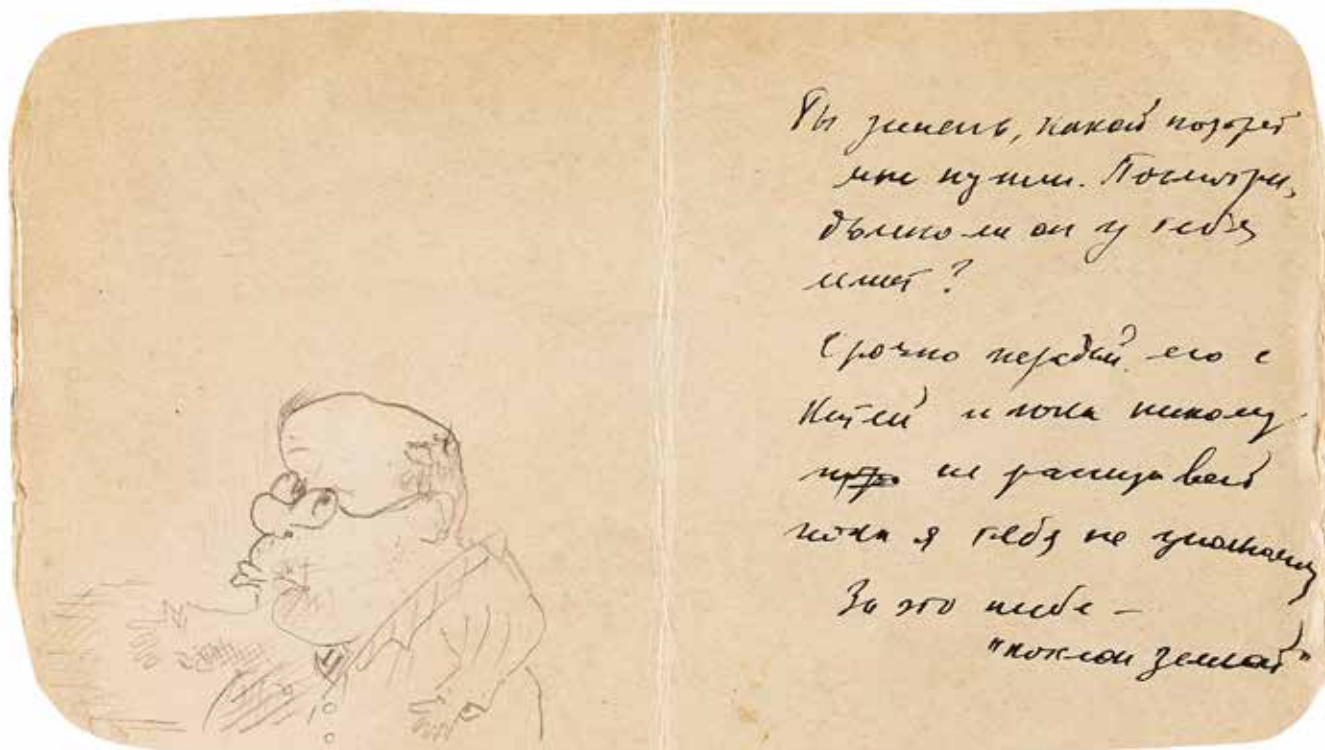 Ты знаешь, какой портрет
мне нужен. Посмотри,
ли он у тебя
?
Срочно передай его с
Катей и пока никому
не рассказывай
пока я тебя не
За это тебе –
"поклон земной"